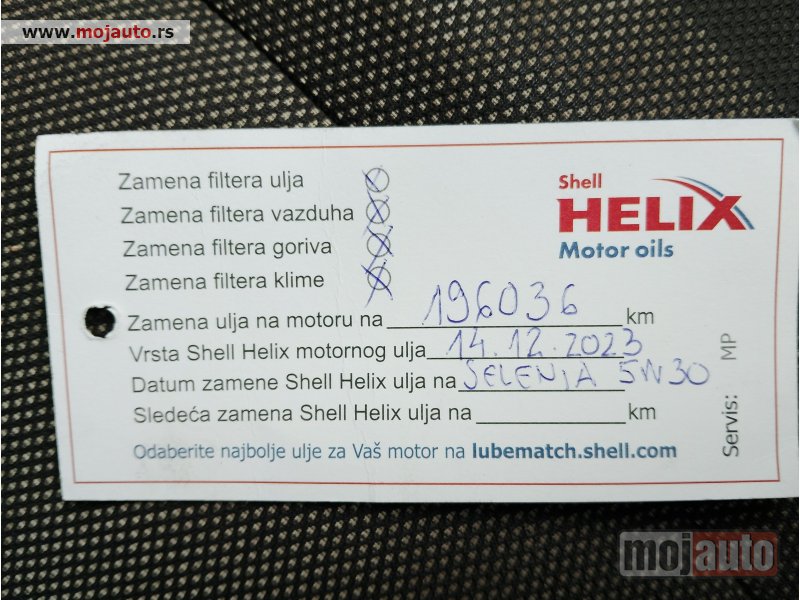 www.mojauto.rs
Zamena filtera ulja
Zamena filtera vazduha
Zamena filtera goriva
Zamena filtera klime
Shell
HELIX
Motor oils
Zamena ulja na motoru na 196036 km
Vrsta Shell Helix motornog ulja 14.12.2023
Datum zamene Shell Helix ulja na SELENIA 5W30
Sledeća zamena Shell Helix ulja na km
Odaberite najbolje ulje za Vaš motor na lubematch.shell.com
Servis: MP
mojauto